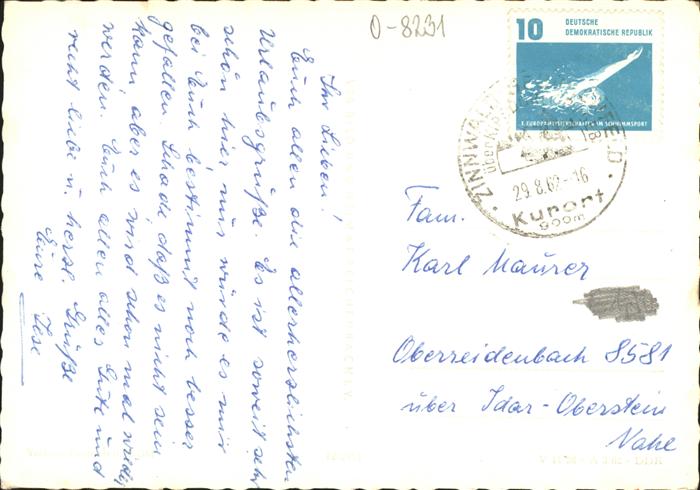 O-8231
10
DEUTSCHE
DEMOKRATISCHE REPUBLIK
X. EUROPAMEISTERSCHAFTEN IM SCHWIMMSPORT
ZINNWALD
über
29.8.62-16
Kurort
900m
Ihr Lieben!
Euch allen die allerherzlichsten
Urlaubsgrüße. Es ist soweit sehr
schön hier, nur würde es mir
bei Euch bestimmt noch besser
gefallen. Schade, daß es nicht sein
kann aber es wird schon mal wieder
werden. Euch allen alles Gute und
recht liebe u. herzl. Grüße
Eure Ilse
Fam.
Karl Maurer
Oberreidenbach 8581
über Idar-Oberstein
Nahe